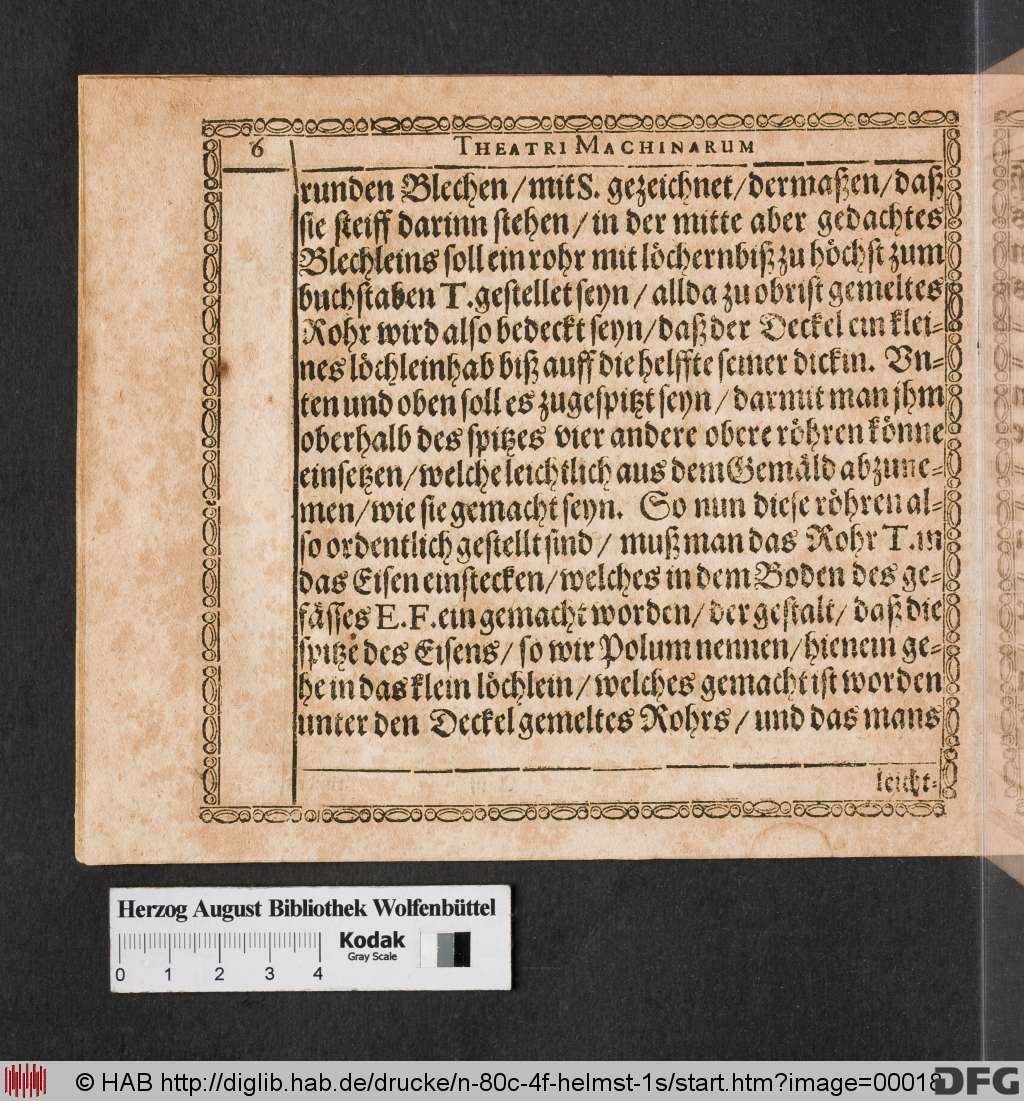 6 THEATRI MACHINARUM
runden Blechen/mit S. gezeichnet/dermaßen/daß
sie steiff darinn stehen/in der mitte aber gedachtes
Blechleins soll ein rohr mit löchern biß zu höchst zum
buchstaben T. gestellet seyn/allda zu obrist gemeltes
Rohr wird also bedeckt seyn/daß der Deckel ein klei-
nes löchlein hab biß auff die helffte seiner dickin. Vn-
ten und oben soll es zugespitzt seyn/darmit man jhm
oberhalb des spitzes vier andere obere röhren könne
einsetzen/welche leichtlich aus dem Gemäld abzune-
men/wie sie gemacht seyn. So nun diese röhren al-
so ordentlich gestellt sind/muß man das Rohr T. in
das Eisen einstecken/welches in dem Boden des ge-
fässes E. F. ein gemacht worden/der gestalt/daß die
spitze des Eisens/so wir Polum nennen/hienein ge-
he in das klein löchlein/welches gemacht ist worden
unter den Deckel gemeltes Rohrs/und das mans
leicht-
Herzog August Bibliothek Wolfenbüttel
Kodak
Gray Scale
0 1 2 3 4
© HAB http://diglib.hab.de/drucke/n-80c-4f-helmst-1s/start.htm?image=00018
DFG